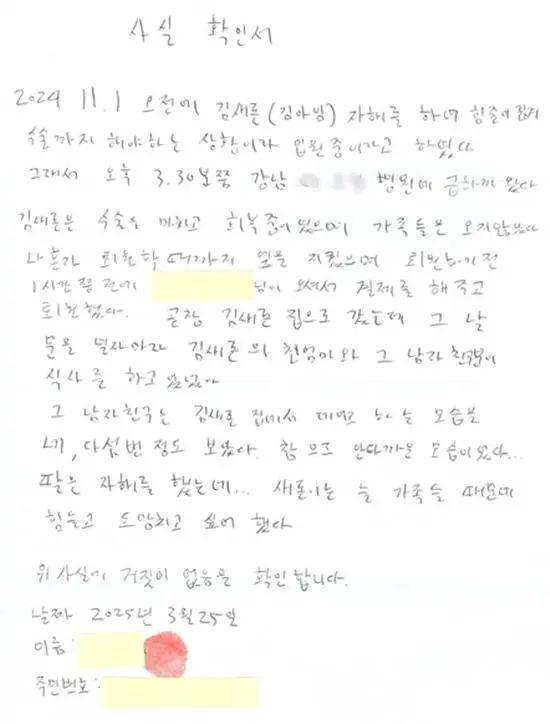 사실 확인서
2024 11.1 오전에 김새론(김아임) 자해를 하여 힘줄이
수술까지 해야하는 상황이라 입원중이라고 하였다
그래서 오후 3.30분쯤 강남 병원에 급하게 갔다
김새론은 수술을 마치고 회복중이었으며 가족들은 오지않았다
나 혼자 퇴원할때까지 옆을 지켰으며 퇴원하기전
1시간 쯤 전에 님이 오셔서 결제를 해주고
퇴원했다. 곧장 김새론 집으로 갔는데 그 날
문을 열자마자 김새론의 친엄마와 그 남자친구분이
식사를 하고 있었다
그 남자친구는 김새론 집에서 하는 모습을
네, 다섯번 정도 보았다. 참으로 안타까운 모습이었다...
딸은 자해를 했는데... 새론이는 늘 가족들 때문에
힘들고 도망치고 싶어 했다
위 사실에 거짓이 없음을 확인합니다.
날짜 2025년 3월 25일
이름:
주민번호: